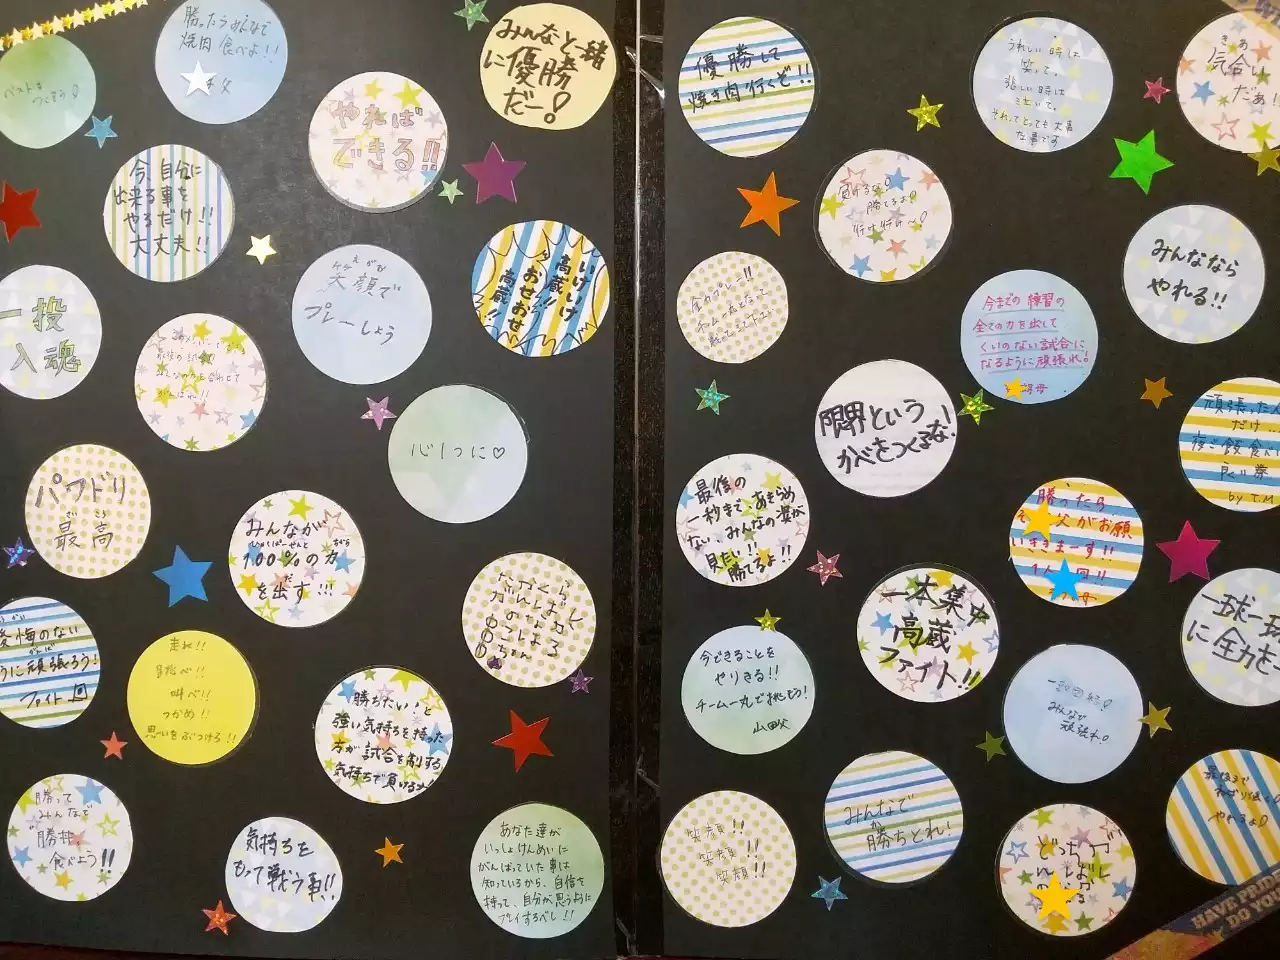 ベストを
つくそう!
勝ったらみんなで
焼肉食べよ!!
父
みんなと一緒
に優勝
だー!
やれば
できる!!
今、自分に
出来る事を
やるだけ!!
大丈夫!!
一投
入魂
えがお
笑顔で
プレーしよう
いけいけ
高蔵!!
おせおせ
高蔵!!
がんばれ!!
心1つに♡
パワドリ
さいこう
最高
みんなが
ひゃくぱーせんと ちから
100%の力
だ
を出す!!!
たかくら
がんばし
後悔のない
がんば
うに頑張ろう!
ファイト一回
走れ!!
飛べ!!
叫べ!!
つかめ!!
思いをぶつけろ!!
勝ちたい!と
強い気持ちを持った
方が試合を制する
気持ちで負けるな!
勝って
みんなで
食べよう!!
気持ちを
もって戦う事!!
あなた達が
いっしょけんめいに
がんばっていた事は
知っているから、自信を
持って、自分が思うように
プレイするべし!!
優勝して
焼き肉行くぞ!!
うれしい時は
笑って、
悲しい時は
泣いて、
それってとっても大事
な事です
きあ
気合い
だぁ!
負けるな!
勝てるよ!
行け行け〜!
みんななら
やれる!!
全力プレー!!
チーム一丸となって
今までの練習の
全ての力を出して
くいのない試合に
なるように頑張れ!
母
限界という
かべをつくるな!
頑張った人
だけ…
夜ご飯食べ
良い券
by T.M
最後の
一秒まで、あきらめ
ない、みんなの姿が
見たい!!
勝てるよ!!
勝ったら
父がお願
いききまーす!!
一本集中
高蔵
ファイト!!
一球一球
に全力を
今できることを
やりきる!!
チーム一丸で挑もう!
山田父
一致団結!
みんなで
頑張れ!
笑顔!!
笑顔!!
笑顔!!
みんなで
か
勝ちとれ!
どっちが
んばし
最後まで
ねばり強く!
やれるよ!
HAVE PRIDE
DO YOU